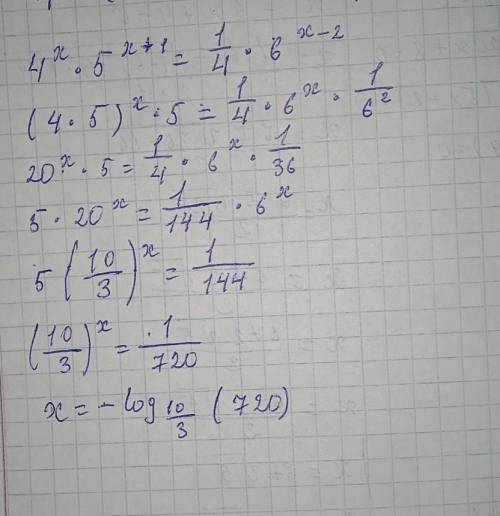 4^x · 5^(x+1) = 1/4 · 6^(x-2)
(4 · 5)^x · 5 = 1/4 · 6^x · 1/6^2
20^x · 5 = 1/4 · 6^x · 1/36
5 · 20^x = 1/144 · 6^x
5 (10/3)^x = 1/144
(10/3)^x = 1/720
x = - log_(10/3) (720)